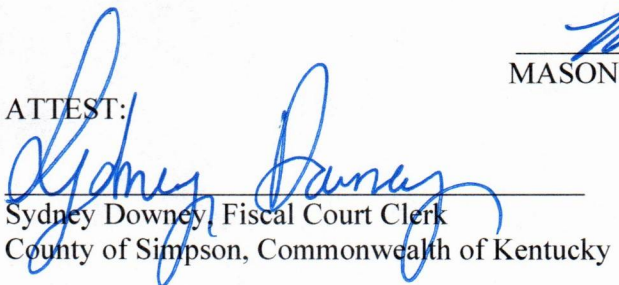 MASON
ATTEST:
Sydney Downey
Sydney Downey, Fiscal Court Clerk
County of Simpson, Commonwealth of Kentucky